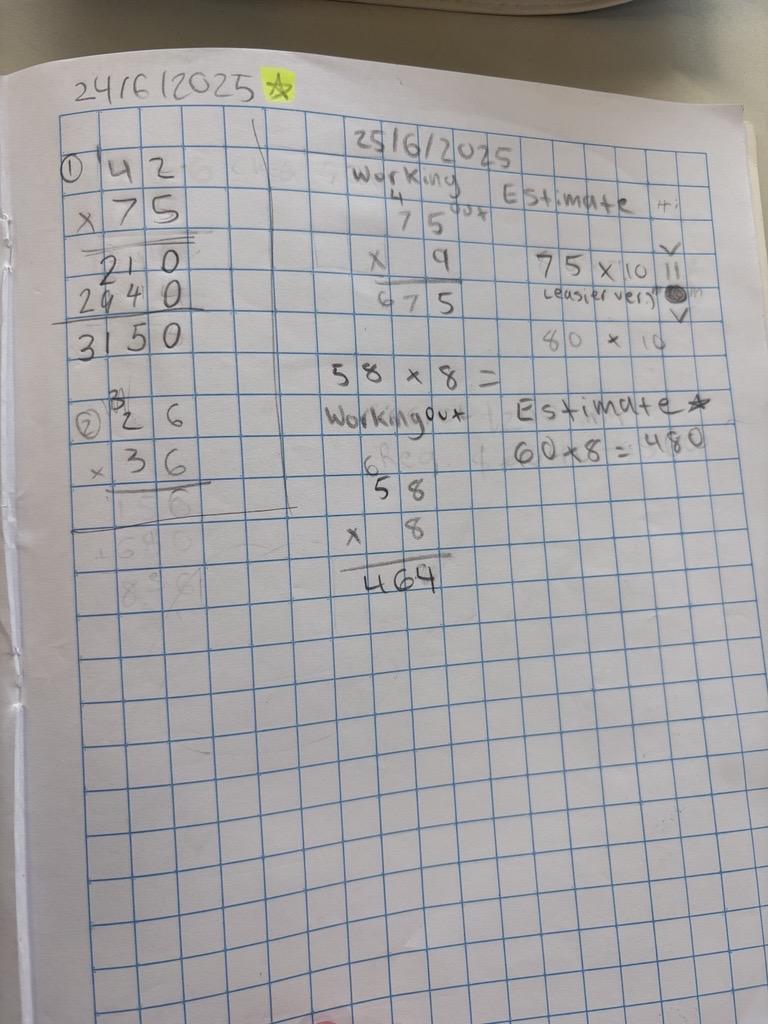 24/6/2025
① 42
× 75
210
2940
3150
② 3
26
× 36
156
25/6/2025
Working out
4
75
× 9
675
Estimate
75 × 10
(easier ver)
80 × 10
58 × 8 =
Working out
6
58
× 8
464
Estimate
60 × 8 = 480